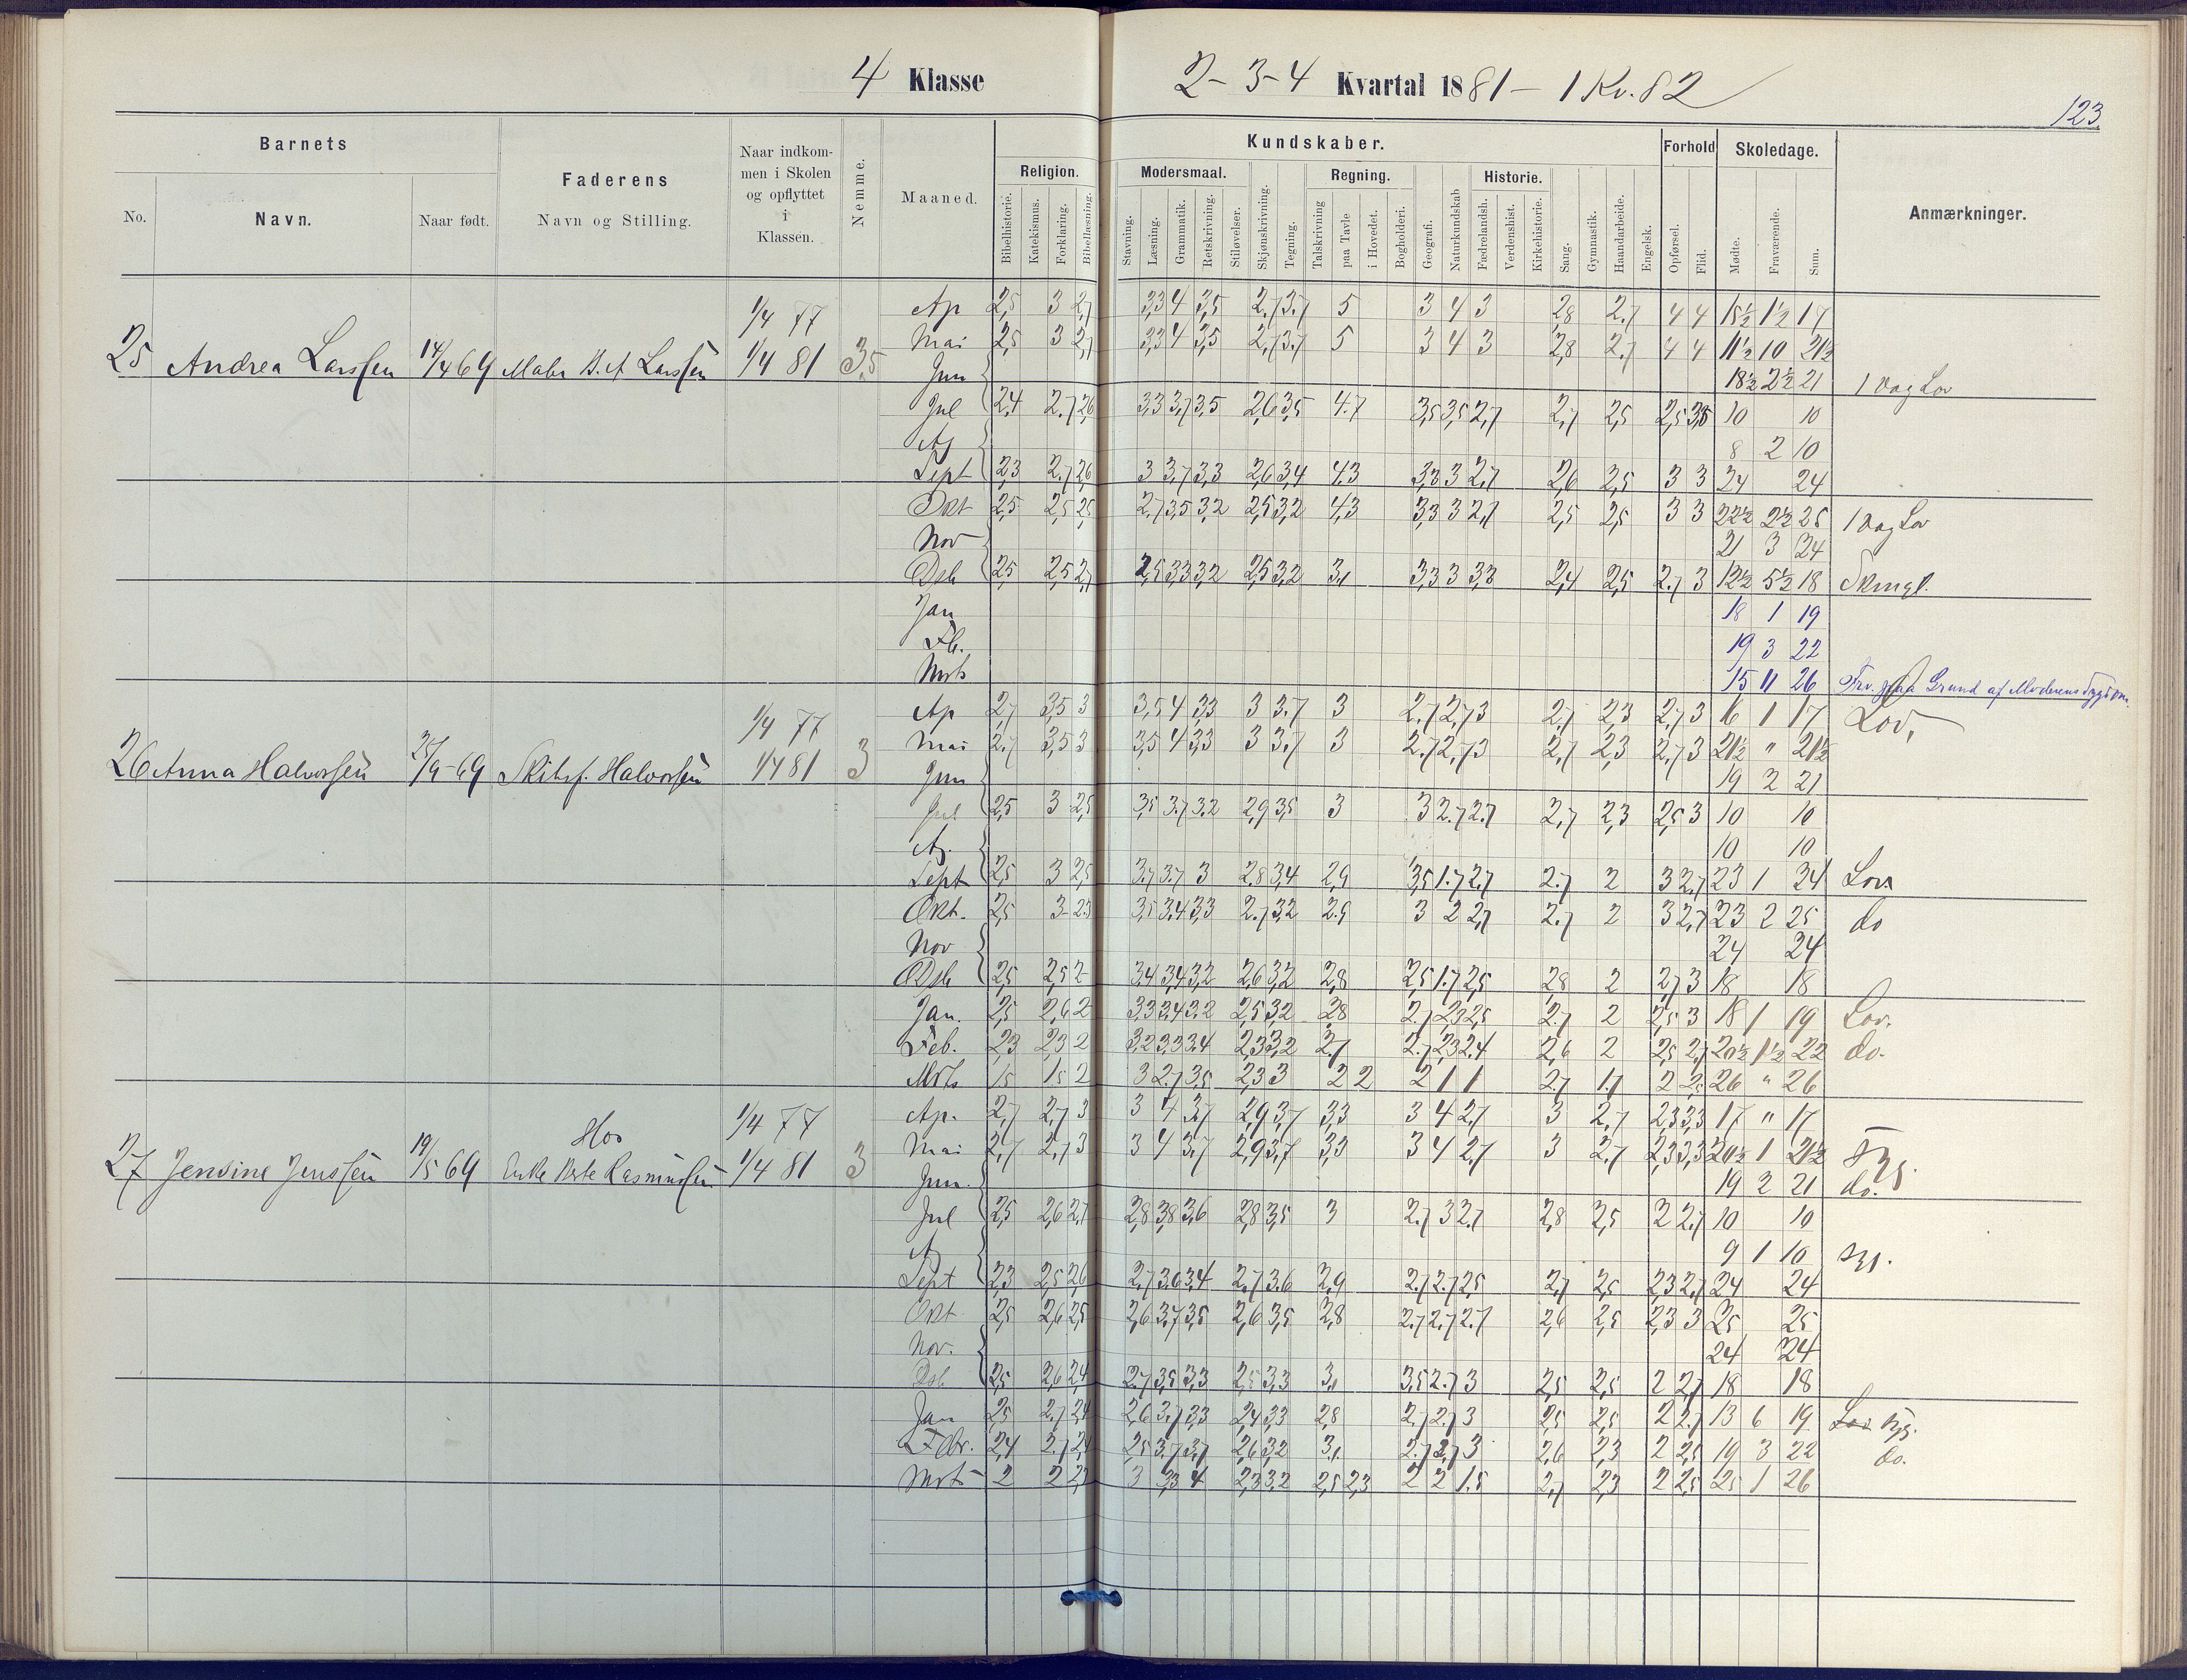 4 Klasse
2-3-4 Kvartal 1881 - 1 Kv. 82
123
Barnets
No.
Navn.
Naar født.
Faderens
Navn og Stilling.
Naar indkom-
men i Skolen
og opflyttet
i
Klassen.
Nemme.
Maaned.
Kundskaber.
Religion.
Bibelhistorie.
Katekismus.
Forklaring.
Bibellæsning.
Modersmaal.
Stavning.
Læsning.
Grammatik.
Retskrivning.
Stiløvelser.
Skjønskrivning.
Tegning.
Regning.
Talskrivning
paa Tavle
i Hovedet.
Bogholderi.
Geografi.
Naturkundskab
Historie.
Fædrelandsh.
Verdenshist.
Kirkehistorie.
Sang.
Gymnastik.
Haandarbeide.
Engelsk.
Forhold
Opførsel.
Flid.
Skoledage.
Mødte.
Fraværende.
Sum.
Anmærkninger.
1/4 77
25 Andrea Larssen 14/4 69 Maler B. A Larssen 1/4 81 3,5
Ap 2,5 3 2,7 3,3 4 3,5 2,7 3,7 5 3 4 3 2,8 2,7 4 4 15½ 1½ 17
Mai 2,5 3 2,7 3,3 4 3,5 2,7 3,7 5 3 4 3 2,8 2,7 4 4 11½ 10 21½
Jun 18½ 2½ 21 1 Dag Lov
Jul 2,4 2,7 2,6 3,3 3,7 3,5 2,6 3,5 4,7 3,5 3,5 2,7 2,7 2,5 2,5 3,5 10 10
Ag 8 2 10
Sept 2,3 2,7 2,6 3 3,7 3,3 2,6 3,4 4,3 3,3 3 2,7 2,6 2,5 3 3 24 24
Okt 2,5 2,5 2,5 2,7 3,5 3,2 2,5 3,2 4,3 3,3 3 2,7 2,5 2,5 3 3 22½ 2½ 25 1 Dag Lov
Nov 21 3 24
Dsb 2,5 2,5 2,7 2,5 3,3 3,2 2,5 3,2 3,1 3,3 3 3,3 2,4 2,5 2,7 3 12½ 5½ 18
Jan 18 1 19
Fb. 19 3 22
Mrts 15 11 26 Frv. paa Grund af Moderens Sygdom.
1/4 77
26 Anna Halvorsen 25/9-69 Skibsf. Halvorsen 1/4 81 3
Ap 2,7 3,5 3 3,5 4 3,3 3 3,7 3 2,7 2,7 3 2,7 2,3 2,7 3 16 1 17 Lov,
Mai 2,7 3,5 3 3,5 4 3,3 3 3,7 3 2,7 2,7 3 2,7 2,3 2,7 3 21½ " 21½
Jun 19 2 21
Jul 2,5 3 2,5 3,5 3,7 3,2 2,9 3,5 3 3 2,7 2,7 2,7 2,3 2,5 3 10 10
Ag. 10 10
Sept 2,5 3 2,5 3,7 3,7 3 2,8 3,4 2,9 3,5 1,7 2,7 2,7 2 3 2,7 23 1 24 Lov
Okt. 2,5 3 2,3 3,5 3,4 3,3 2,7 3,2 2,9 3 2 2,7 2,7 2 3 2,7 23 2 25 do
Nov 24 24
Dsb 2,5 2,5 2 3,4 3,4 3,2 2,6 3,2 2,8 2,5 1,7 2,5 2,8 2 2,7 3 18 18
Jan. 2,5 2,6 2 3,3 3,4 3,2 2,5 3,2 2,8 2,7 2,3 2,5 2,7 2 2,5 3 18 1 19 Lov.
Feb. 2,3 2,3 2 3,2 3,3 3,4 2,3 3,2 2,7 2,7 2,3 2,4 2,6 2 2,5 2,7 20½ 1½ 22 do.
Mrts 1,5 1,5 2 3 2,7 3,5 2,3 3 2 2 2 1 1 2,7 1,7 2 2,5 26 " 26
1/4 77
Hos
27 Jensine Jenssen 19/5 69 Enke Rasmussen 1/4 81 3
Ap. 2,7 2,7 3 3 4 3,7 2,9 3,7 3,3 3 4 2,7 3 2,7 2,3 3,3 17 " 17
Mai 2,7 2,7 3 3 4 3,7 2,9 3,7 3,3 3 4 2,7 3 2,7 2,3 3,3 20½ 1 21½ Syg.
Jun. 19 2 21 do.
Jul 2,5 2,6 2,7 2,8 3,8 3,6 2,8 3,5 3 2,7 3 2,7 2,8 2,5 2 2,7 10 10
Ag 9 1 10 Syg.
Sept 2,3 2,5 2,6 2,7 3,6 3,4 2,7 3,6 2,9 2,7 2,7 2,5 2,7 2,5 2,3 2,7 24 24
Okt 2,5 2,6 2,5 2,6 3,7 3,5 2,6 3,5 2,8 2,7 2,7 2,7 2,6 2,5 2,3 3 25 25
Nov. 24 24
Dsb 2,5 2,6 2,4 2,7 3,5 3,3 2,5 3,3 3,1 3,5 2,7 3 2,5 2,5 2 2,7 18 18
Jan 2,5 2,7 2,4 2,6 3,7 3,3 2,4 3,3 2,8 2,7 2,7 3 2,5 2,5 2 2,7 13 6 19 Lov Syg.
Febr. 2,4 2,7 2,4 2,5 3,7 3,7 2,6 3,2 3,1 2,7 2,7 3 2,6 2,3 2 2,5 19 3 22 do.
Mrts 2 2 2,7 3 3,3 4 2,3 3,2 2,5 2,3 2 2 1,5 2,7 2,3 2 2,5 25 1 26